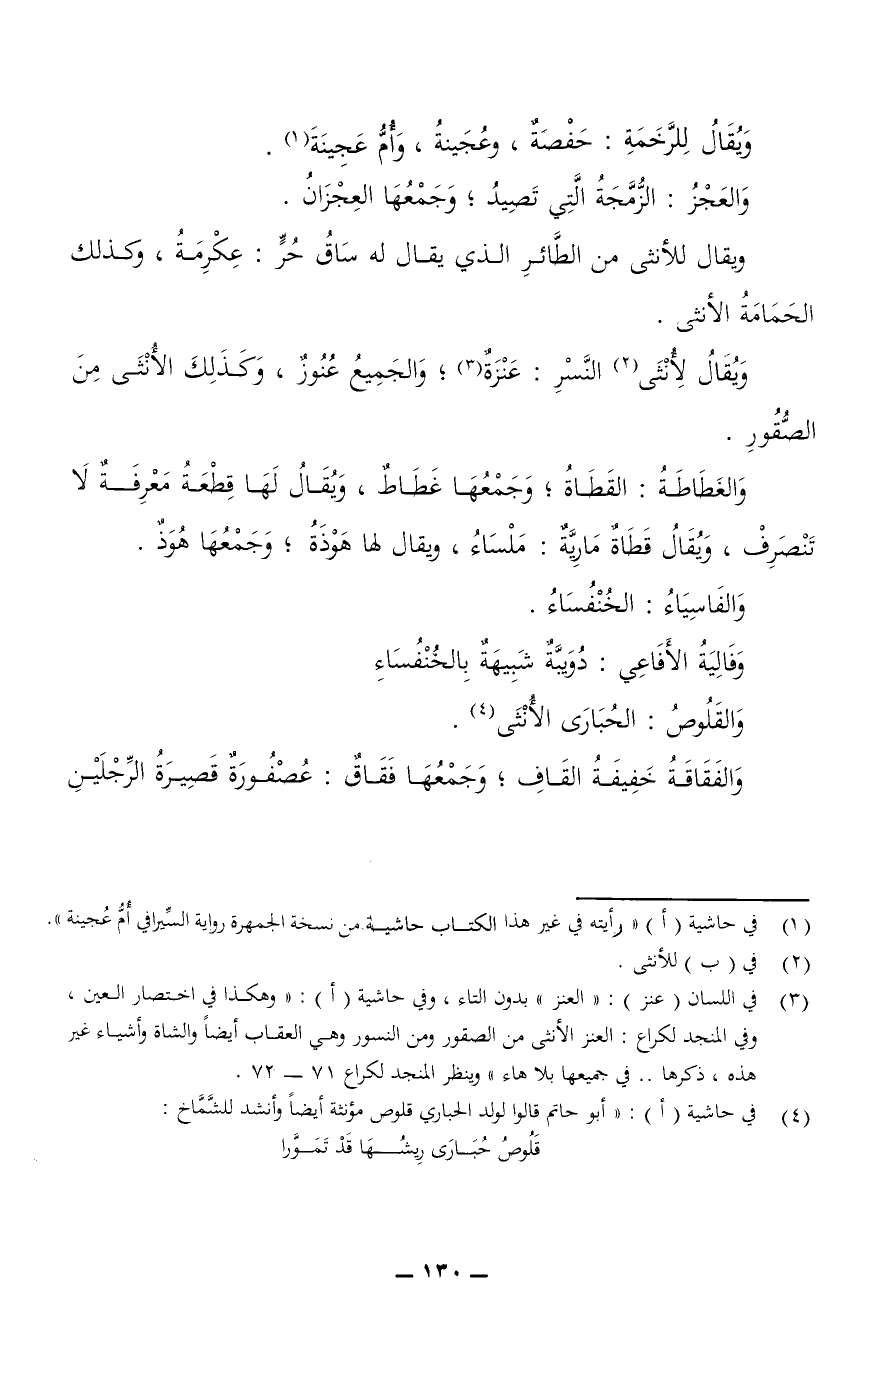 وَيُقَالُ لِلرَّخَمَةِ : حَفْصَةٌ ، وعُجَينةُ ، وَأُمُّ عَجِينَةَ(١) .
وَالعَجْزُ : الزُّمَّجَةُ الَّتِي تَصِيدُ ؛ وَجَمْعُهَا العِجْزَانُ .
ويقال للأنثى من الطَّائرِ الذي يقال له سَاقُ حُرٍّ : عِكْرِمَةُ ، وكذلك
الحَمَامَةُ الأنثى .
وَيُقَالُ لِأُنْثَى(٢) النَّسْرِ : عَنْزَةٌ(٣) ؛ وَالجَمِيعُ عُنُوزٌ ، وَكَذَلِكَ الأُنْثَى مِنَ
الصُّقُورِ .
وَالغَطَاطَةُ : القَطَاةُ ؛ وَجَمْعُهَا غَطَاطٌ ، وَيُقَالُ لَهَا قِطْعَةُ مَعْرِفَةٌ لَا
تَنْصَرِفْ ، وَيُقَالُ قَطَاةٌ مَارِيَّةٌ : مَلْسَاءُ ، ويقال لها هَوْذَةُ ؛ وَجَمْعُهَا هُوَذٌ .
وَالفَاسِيَاءُ : الخُنْفُسَاءُ .
وَفَالِيَةُ الأَفَاعِي : دُوَيبَّةٌ شَبِيهَةٌ بِالخُنْفُسَاءِ
وَالقَلُوصُ : الحُبَارَى الأُنْثَى(٤) .
وَالفَقَاقَةُ خَفِيفَةُ القَافِ ؛ وَجَمْعُهَا فَقَاقٌ : عُصْفُورَةٌ قَصِيرَةُ الرِّجْلَيْنِ
(١) في حاشية ( أ ) « رأيته في غير هذا الكتاب حاشية من نسخة الجمهرة رواية السِّيرافي أُمُّ عُجينة ».
(٢) في ( ب ) للأنثى .
(٣) في اللسان ( عنز ) : « العنز » بدون التاء ، وفي حاشية ( أ ) : « وهكذا في اختصار العين ،
وفي المنجد لكراع : العنز الأنثى من الصقور ومن النسور وهي العقاب أيضاً والشاة وأشياء غير
هذه ، ذكرها .. في جميعها بلا هاء » وينظر المنجد لكراع ٧١ ــ ٧٢ .
(٤) في حاشية ( أ ) : « أبو حاتم قالوا لولد الحباري قلوص مؤنثة أيضاً وأنشد للشَّمَّاخ :
قَلُوصُ حُبَارَى رِيشُهَا قَدْ تَمَوَّرا
ــ ١٣٠ ــ